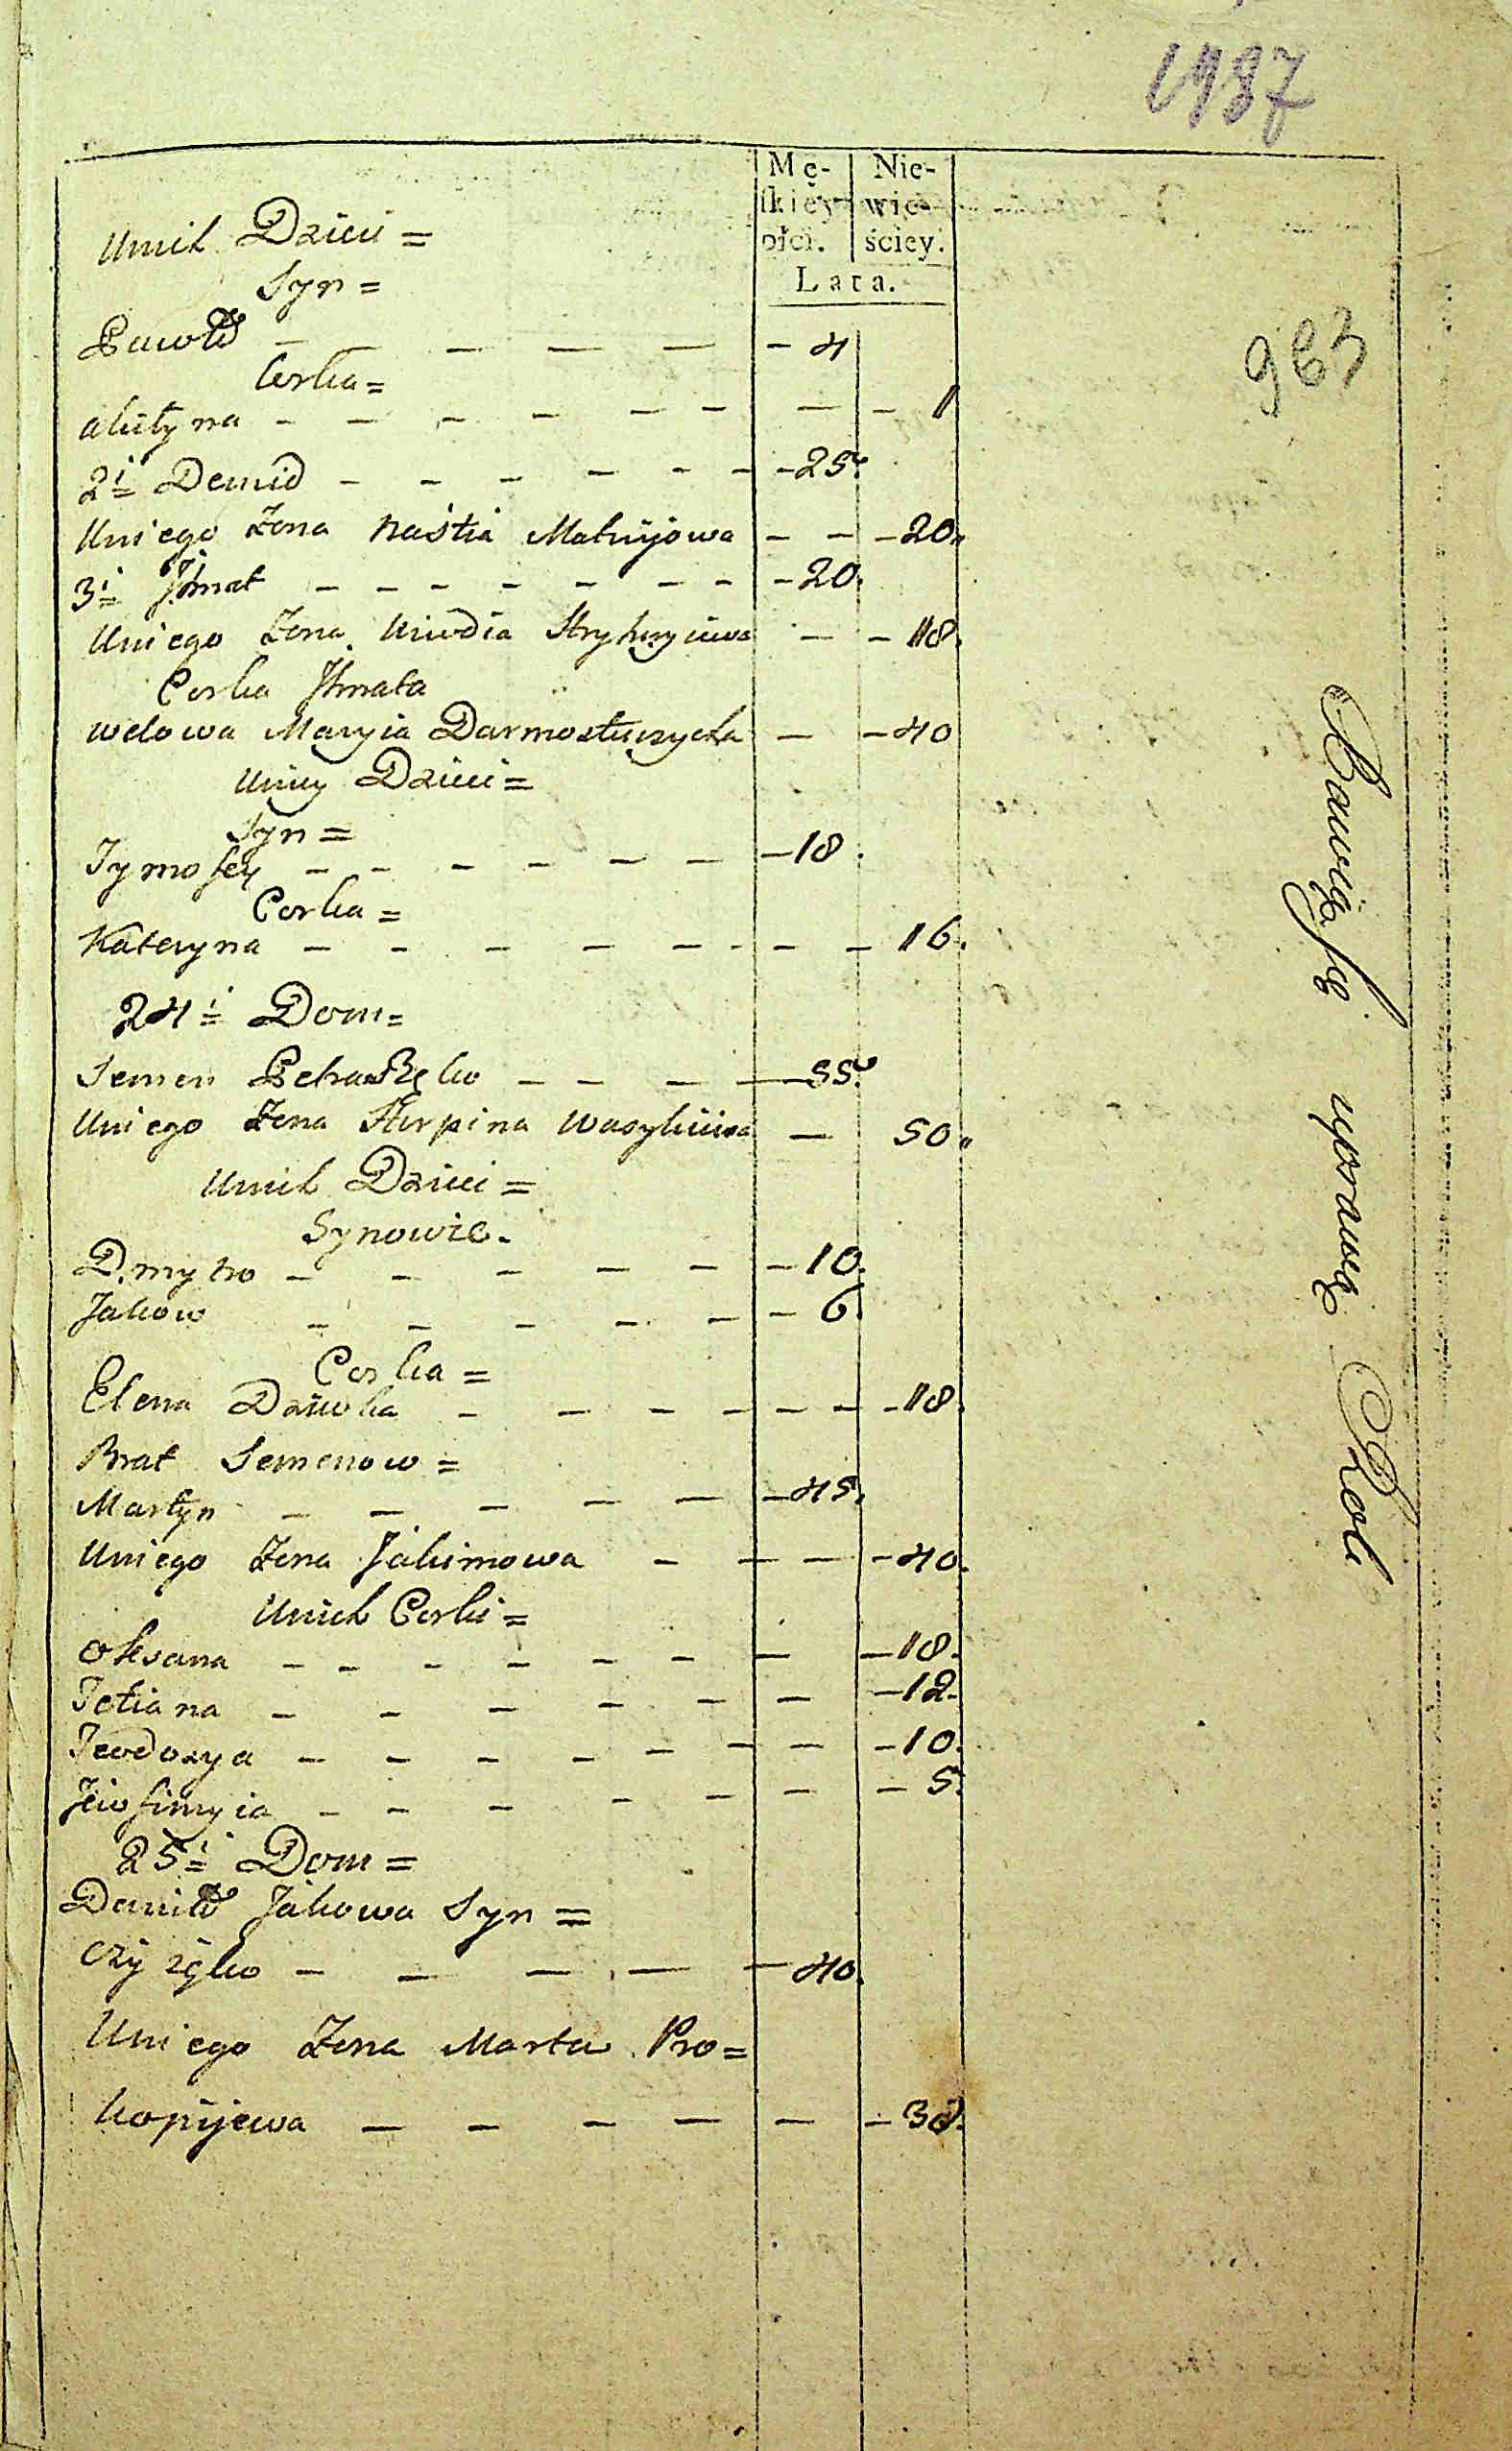 1987
Mę- Nie-
ſkiey wie-
płci. ściey.
Lata.
983
Unich Dzieci =
Syn =
Pawło - - - - - - 4
Corka =
akiłyna - - - - - - - - 1
2i Demid - - - - - - - 25.
Uniego Zona Nastia Matwijowa - - - 20.
3i Jhnat - - - - - - - - 20.
Uniego Zona Hrychoryiowa - - 18.
Corka Jhnata
wdowa Maryia - - 40
Uniey Dzieci =
Syn =
Tymofey - - - - - - - 18.
Corka =
Kateryna - - - - - - - - 16.
24i Dom =
Semen - - - - 55.
Uniego Zona Wasylowa - 50.
Unich Dzieci =
Synowie.
Dmytro - - - - - - 10.
Jakow - - - - - - 6.
Corka =
Elena Dziwka - - - - - - - 18.
Brat Semenow =
Martyn - - - - - - 45.
Uniego Zona Jakimowa - - - - 40.
Unich Corki =
Oksana - - - - - - - - 18.
Tetiana - - - - - - - - 12.
Teodozya - - - - - - - - 10.
Jewfimyia - - - - - - - 5.
25i Dom =
Daniło Jakowa Syn =
Czyżęko - - - - - 40.
Uniego Zona Marta Pro=
kopijewa - - - - - - 30.
Bawią się uprawą Roli